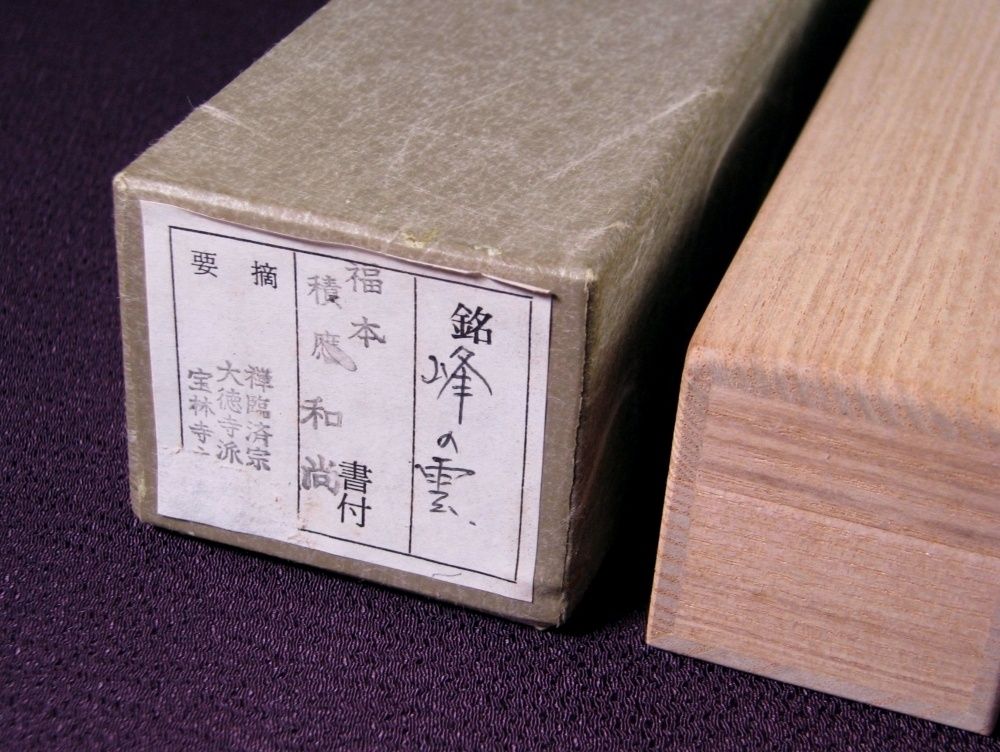 銘 峰の雲
福本
積應和尚
書付
摘要
禅臨済宗
大徳寺派
宝林寺